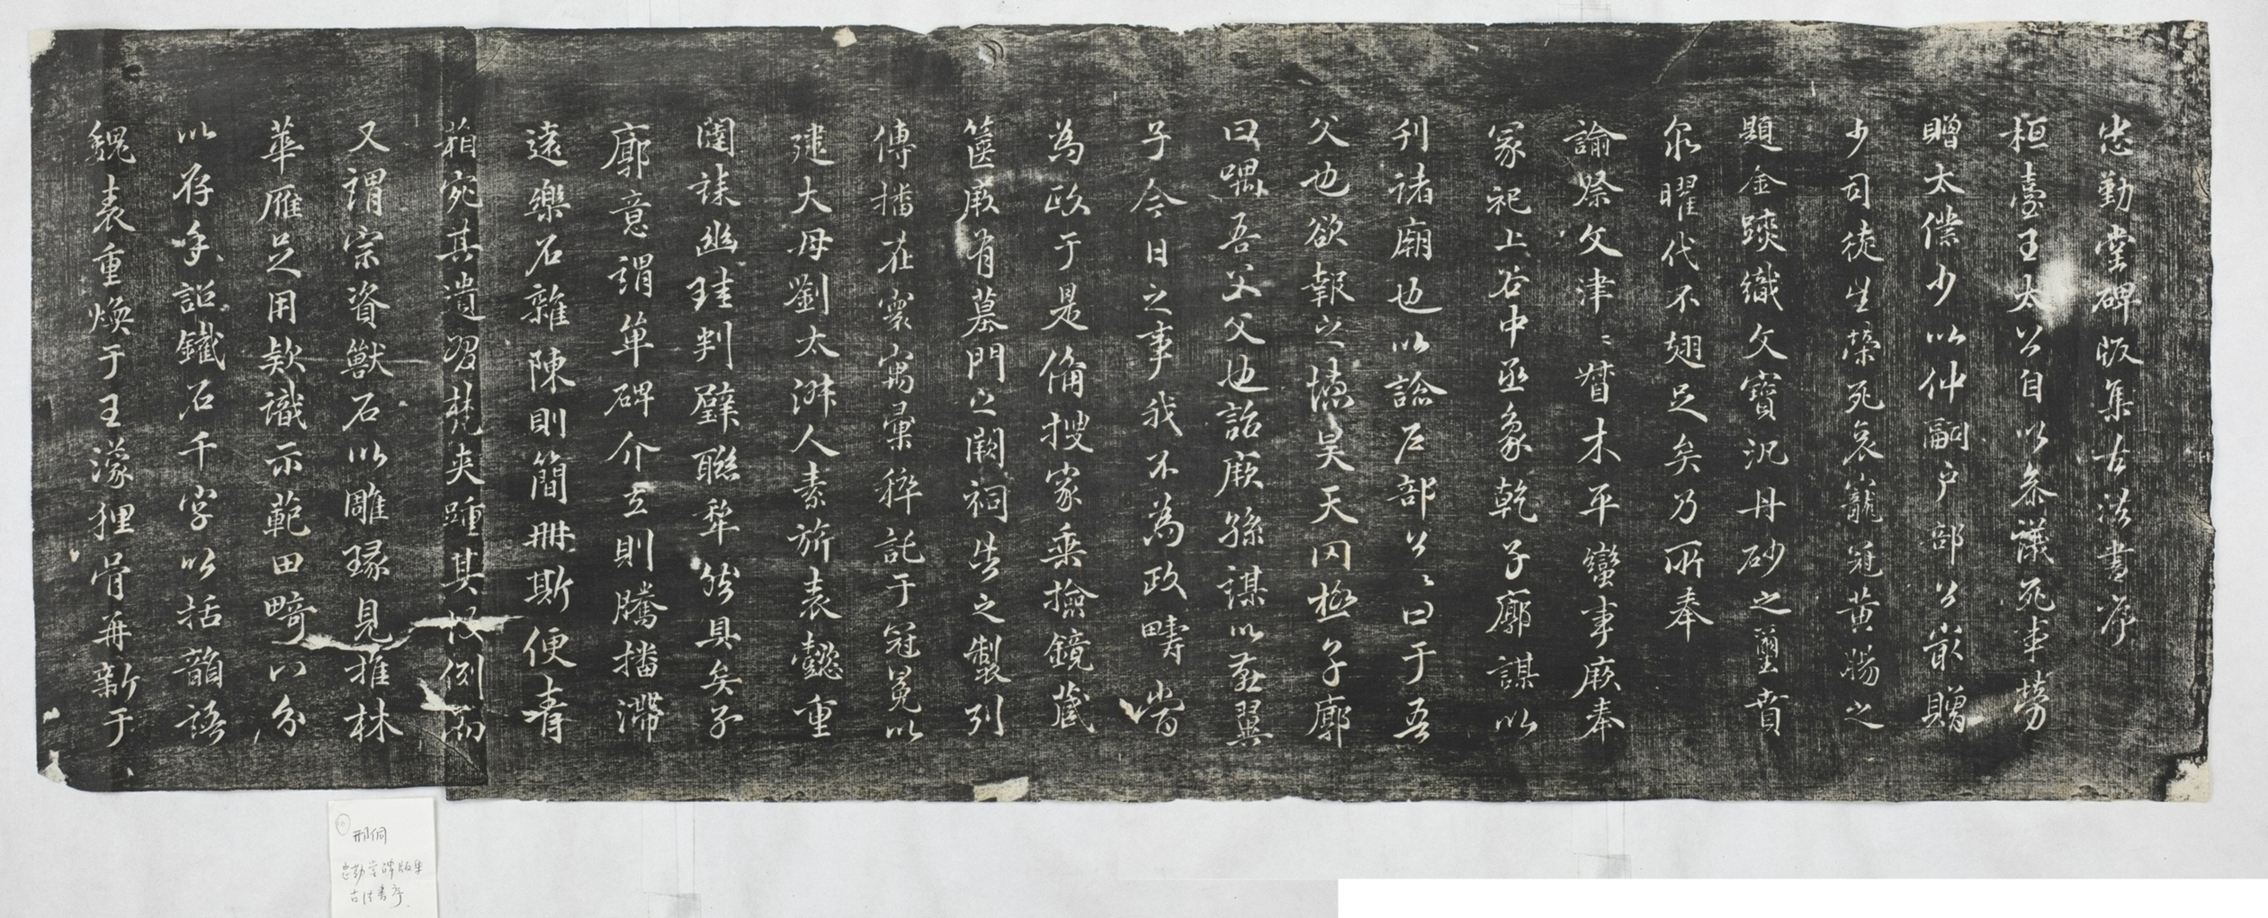 忠勤堂碑版集古法書序
桓臺王太公自以參議死事勞
贈太僕少以仲嗣戶部公最贈
少司徒生榮死哀寵冠黃腸之
題金鏤織文寶況丹砂之璽賁
泉曜代不翅足矣乃所奉
諭祭文津津督木平蠻事厥奉
冢祀上谷中丞象乾子廓謀以
刊諸廟也以諗戶部公公曰于吾
父也欲報之懷昊天罔極子廓
曰嘻吾父父也詒厥孫謀以燕翼
子今日之事我不為政疇當
為政于是備搜家乘撿鏡藏
篋厥有墓門之闕祠告之製列
傳播在寰寓彙稡託于冠冕以
建大母劉太淑人素旂表懿重
闈誄幽珪判璧聯犂然具矣子
廓意謂單碑介立則騰播滯
遠樂石雜陳則簡冊斯便青
箱宛其遺習梵夾踵其役例而
又謂宗資獸石以雕琢見推林
華雁足用款識示範田畸以分
以存手詔鐵石千字以括韻語
魏表重煥于王濛狸骨再新于
邢侗
忠勤堂碑版集
古法書序